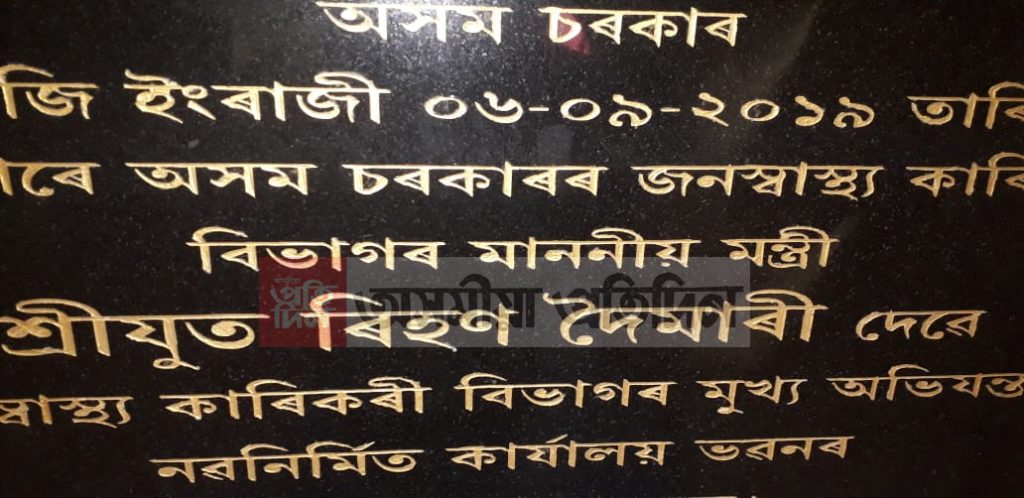 অসম চৰকাৰ
জি ইংৰাজী ০৬-০৯-২০১৯ তাৰি
াৰে অসম চৰকাৰৰ জনস্বাস্থ্য কাৰি
বিভাগৰ মাননীয় মন্ত্ৰী
শ্ৰীযুত ৰিহণ দৈমাৰী দেৱে
স্বাস্থ্য কাৰিকৰী বিভাগৰ মুখ্য অভিযন্ত
নৱনিৰ্মিত কাৰ্যালয় ভৱনৰ
অসমীয়া প্ৰতিদিন
অসমীয়া প্ৰতিদিন